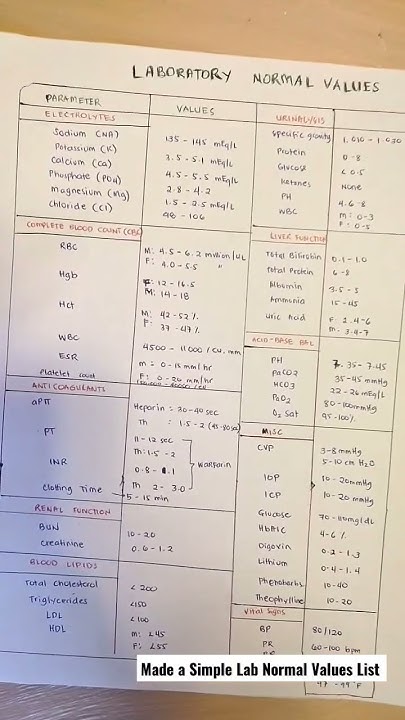 LABORATORY NORMAL VALUES
PARAMETER VALUES
ELECTROLYTES
Sodium (NA) 135 - 145 mEq/L
Potassium (K) 3.5 - 5.1 mEq/L
Calcium (Ca) 4.5 - 5.5 mEq/L
Phosphate (PO4) 2.8 - 4.2
Magnesium (Mg) 1.5 - 2.5 mEq/L
Chloride (Cl) 98 - 106
COMPLETE BLOOD COUNT (CBC)
RBC M: 4.5 - 6.2 million/uL
F: 4.0 - 5.5 "
Hgb F: 12 - 16.5
M: 14 - 18
Hct M: 42 - 52%
F: 37 - 47%
WBC 4500 - 11000 / cu. mm
ESR m = 0 - 15 mm/hr
F: 0 - 20 mm/hr
Platelet count
ANTICOAGULANTS
aPTT Heparin = 20-40 sec
Th = 1.5 - 2 (45-80 sec)
PT 11 - 12 sec
Th: 1.5 - 2
INR 0.8 - 1.1 warfarin
Th 2 - 3.0
Clotting Time 5 - 15 min
RENAL FUNCTION
BUN 10 - 20
Creatinine 0.6 - 1.2
BLOOD LIPIDS
Total Cholesterol < 200
Triglycerides <150
LDL <100
HDL m: <45
F: <55
URINALYSIS
Specific gravity 1.010 - 1.030
Protein 0 - 8
Glucose < 0.5
Ketones None
PH 4.6 - 8
WBC m: 0 - 3
F: 0 - 5
LIVER FUNCTION
Total Bilirubin 0.1 - 1.0
Total Protein 6 - 8
Albumin 3.5 - 5
Ammonia 15 - 45
Uric Acid F: 2.4 - 6
m: 3.4 - 7
ACID-BASE BAL
PH 7.35 - 7.45
PaCO2 35 - 45 mmHg
HCO3 22 - 26 mEq/L
PaO2 80 - 100 mmHg
O2 Sat 95 - 100%
MISC
CVP 3-8 mmHg
5-10 cm H2O
IOP 10 - 20mmHg
ICP 10 - 20 mmHg
Glucose 70 - 110 mg/dL
HbA1C 4 - 6 %
Digoxin 0.2 - 1.3
Lithium 0.4 - 1.4
Phenobarbs 10-40
Theophylline 10 - 20
Vital Signs
BP 80/120
PR 60-100 bpm
97 - 99°F
Made a Simple Lab Normal Values List